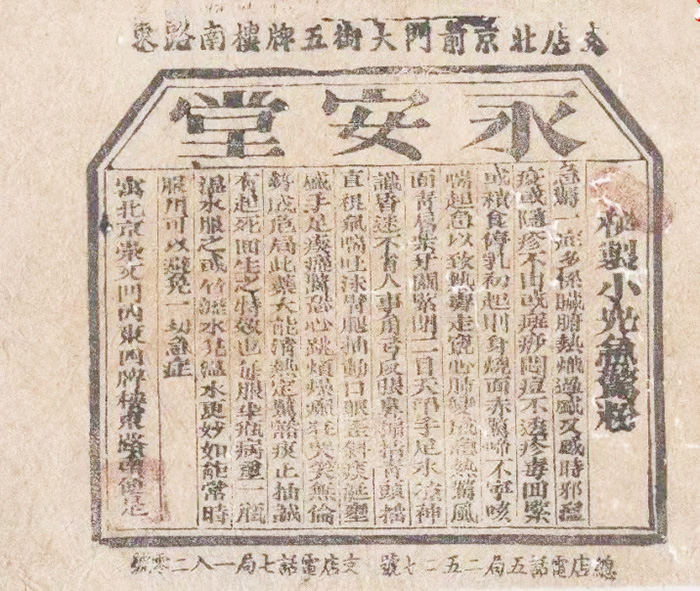 支店北京前門大街五牌樓南路東
永安堂
秘製小兒急驚粉
急驚一症多係臟腑熱熾過盛又感時邪瘟
疫或隱疹不出或斑疹悶痘不透疹毒回緊
或積食停乳初起則身燒面赤驚啼不寧咳
喘起急以致熱毒走竄心肺變成急熱驚風
面青唇紫牙關緊閉二目天吊手足冰涼神
識昏迷不省人事角弓反張鼻搧搖頭
直視氣喘吐沫臂腿抽動口眼歪斜痰涎壅
盛手足痠心跳煩燥癲狂哭笑無倫
勢成危局此藥大能清熱定驚豁痰止抽誠
有起死回生之特效也每服半瓶病重一瓶
溫水服之或竹瀝水兌溫水更妙如能常時
服用可以避免一切急症
寓北京崇文門內東四牌樓東路南便是
總店電話五局二五二七號 支店電話七局一八二零號